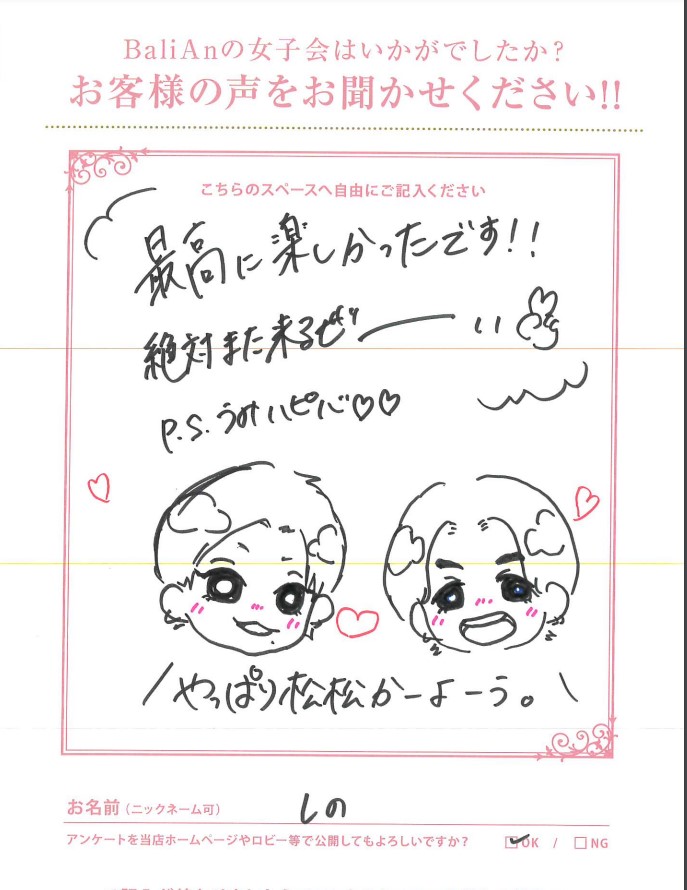 BaliAnの女子会はいかがでしたか?
お客様の声をお聞かせください!!
こちらのスペースへ自由にご記入ください
最高に楽しかったです!!
絶対また来るぜー
P.S. うみハピバ♡♡
\やっぱり松松かーよーう。/
お名前(ニックネーム可) しの
アンケートを当店ホームページやロビー等で公開してもよろしいですか? ☑OK / □NG